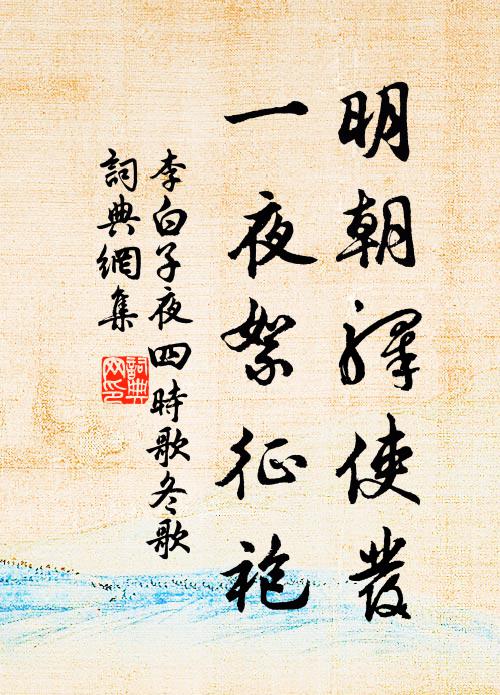 明朝驛使發
一夜絮征袍
李白子夜四時歌冬歌
詞典網集
詞典
网印